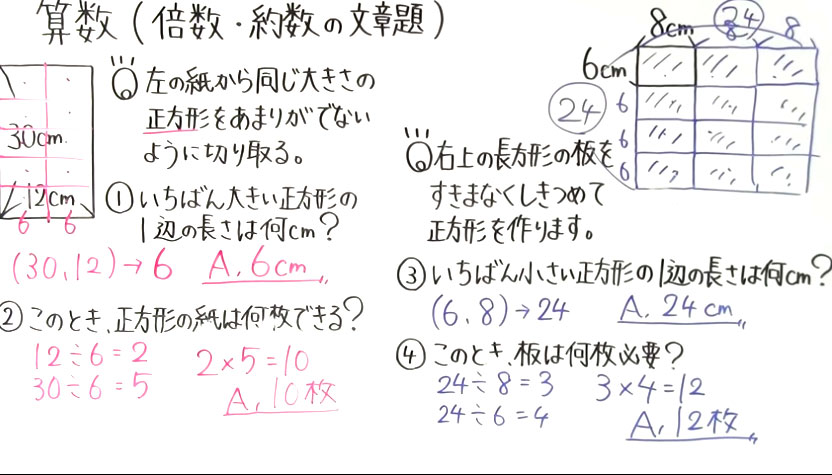 算数（倍数・約数の文章題）
30cm
12cm
6 6
Q 左の紙から同じ大きさの
正方形をあまりがでない
ように切り取る。
①いちばん大きい正方形の
1辺の長さは何cm？
(30,12)→6 A.6cm
②このとき、正方形の紙は何枚できる？
12÷6=2
30÷6=5
2×5=10
A.10枚
8cm 8 8
24
6cm
24
6
6
6
Q 右上の長方形の板を
すきまなくしきつめて
正方形を作ります。
③いちばん小さい正方形の1辺の長さは何cm？
(6,8)→24 A.24cm
④このとき、板は何枚必要？
24÷8=3
24÷6=4
3×4=12
A.12枚